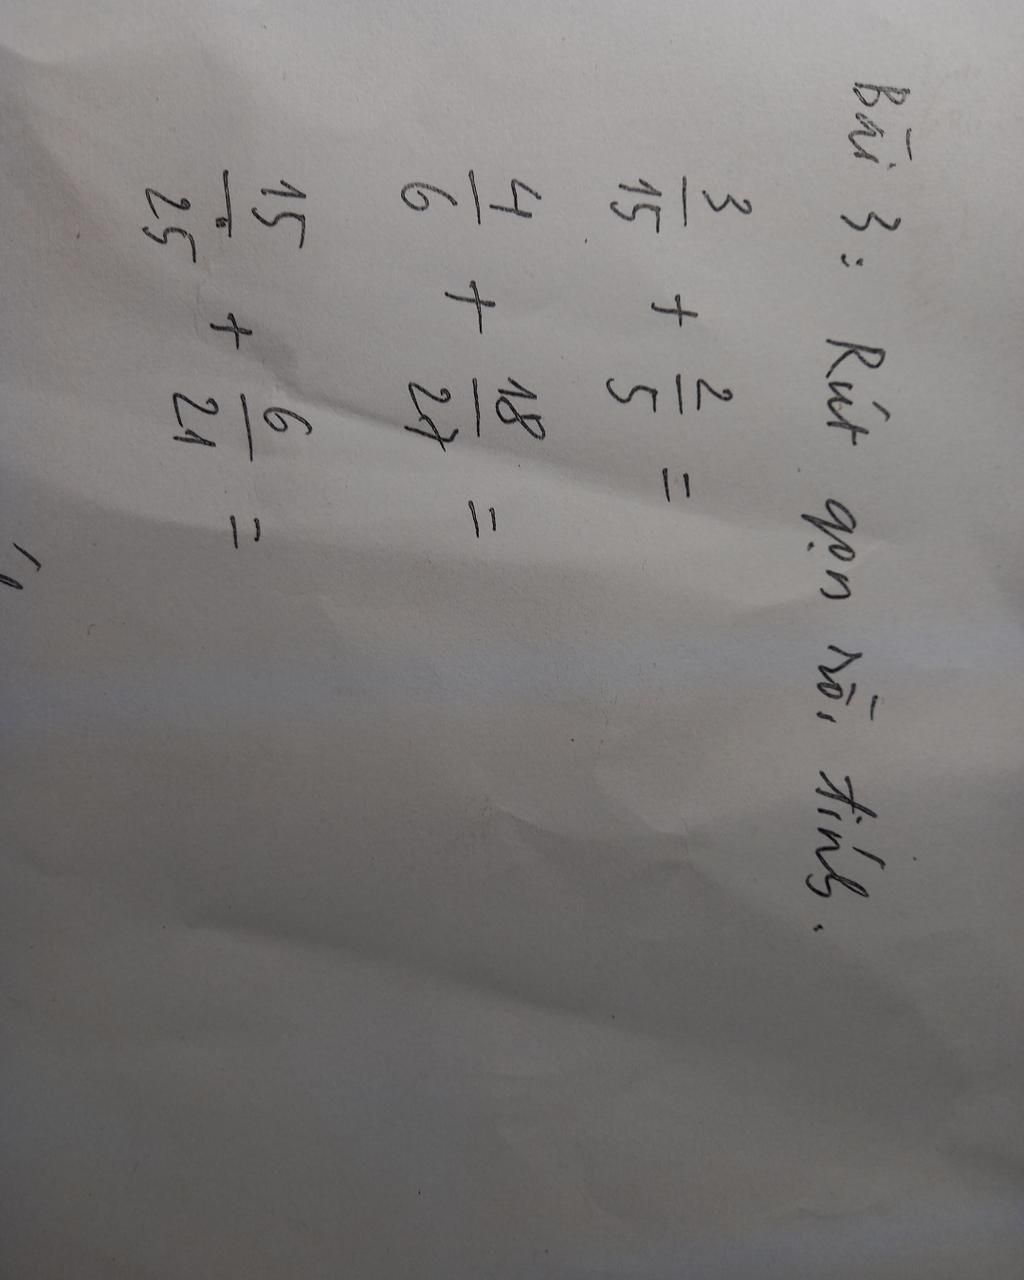 Bài 3: Rút gọn rồi tính.
3/15 + 2/5 =
4/6 + 18/27 =
15/25 + 6/21 =